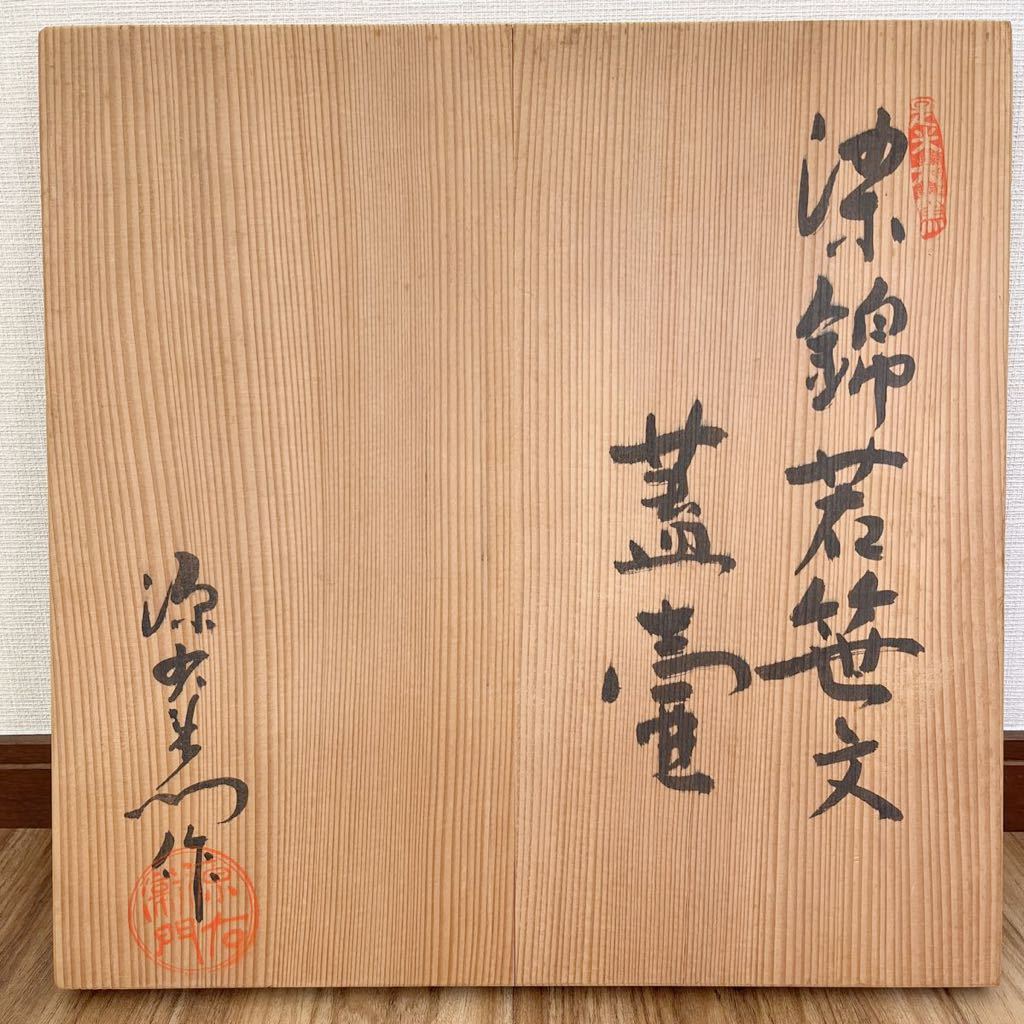 染錦若笹文
蓋壷
源右衛門作
源右衛門